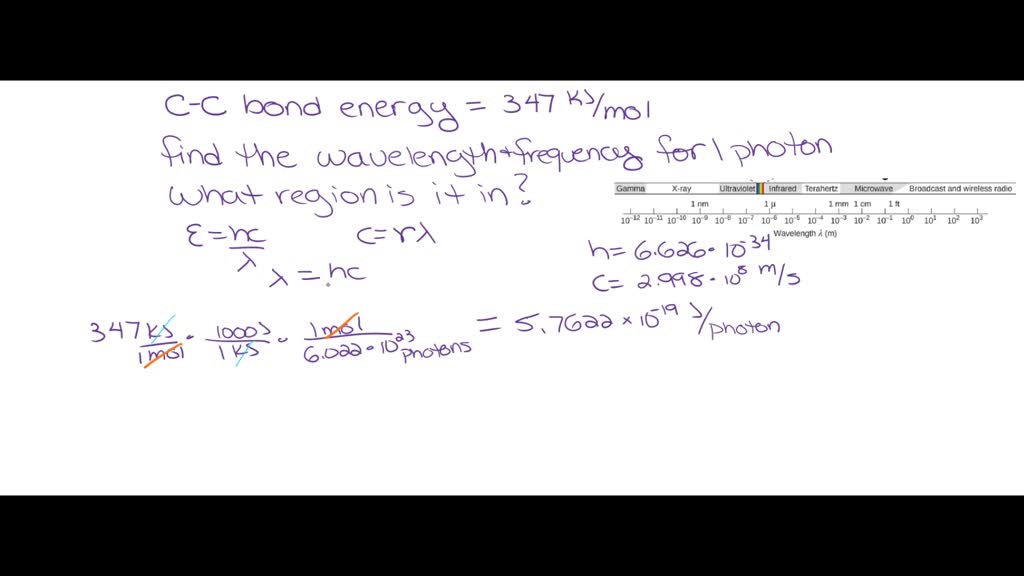 C-C bond energy = 347 KJ/mol
find the wavelength + frequency for 1 photon
what region is it in?
Gamma X-ray Ultraviolet Infrared Terahertz Microwave Broadcast and wireless radio
1 nm 1 μ 1 mm 1 cm 1 ft
10⁻¹² 10⁻¹¹ 10⁻¹⁰ 10⁻⁹ 10⁻⁸ 10⁻⁷ 10⁻⁶ 10⁻⁵ 10⁻⁴ 10⁻³ 10⁻² 10⁻¹ 10⁰ 10¹ 10² 10³
Wavelength λ (m)
E = hc/λ C = rλ
λ = hc
h = 6.626 · 10⁻³⁴
C = 2.998 · 10⁸ m/s
347 KJ/1 mol · 1000 J/1 KJ · 1 mol/6.022 · 10²³ photons = 5.7622 × 10⁻¹⁹ J/photon